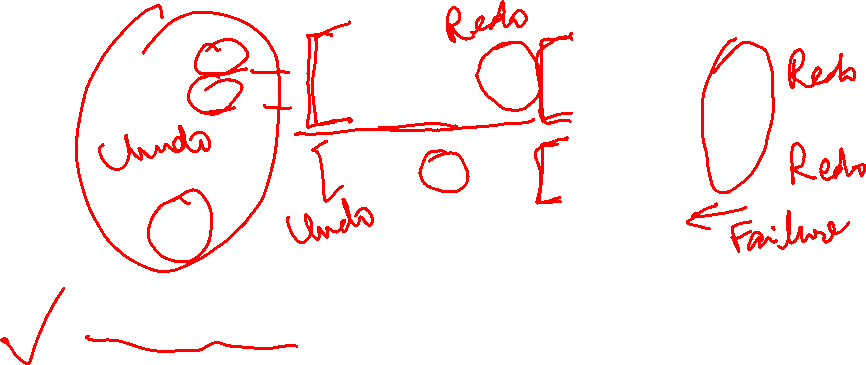 Redo
Redo
Undo
Redo
Undo
Failure